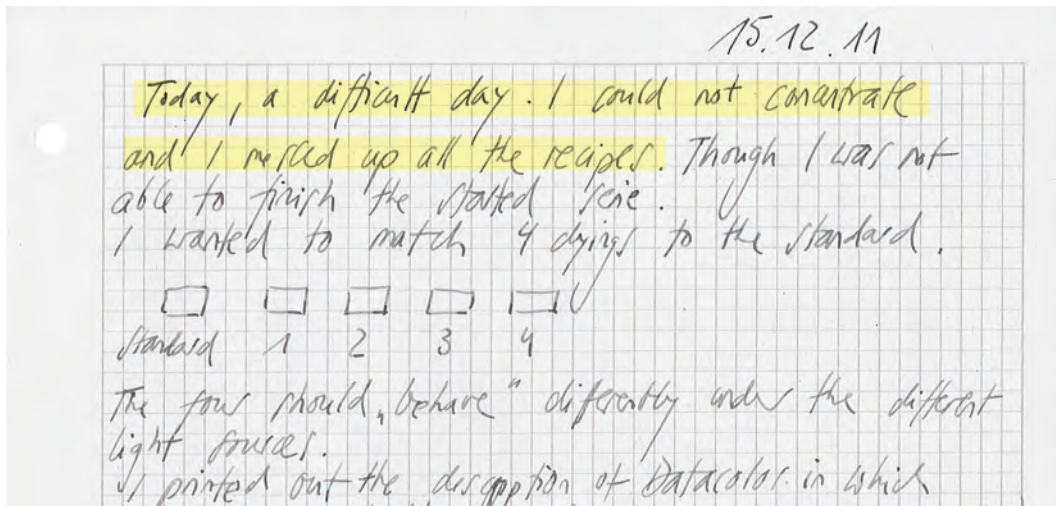 15.12.11
Today, a difficult day. I could not concentrate
and I messed up all the recipes. Though I was not
able to finish the started serie.
I wanted to match 4 dyings to the standard.
standard 1 2 3 4
The four should „behave" differently under the different
light sources.
I printed out the description of Datacolor in which